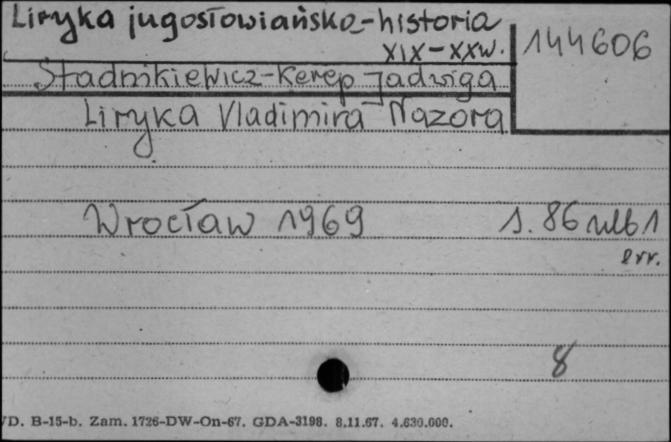 Liryka jugosłowiańska-historia
XIX-XXw.
144606
Stadnikiewicz-Kerep Jadwiga
Liryka Vladimira Nazora
Wrocław 1969
s. 86 nlb 1
err.
8
/D. B-15-b. Zam. 1726-DW-On-67. GDA-3198. 8.11.67. 4.630.000.